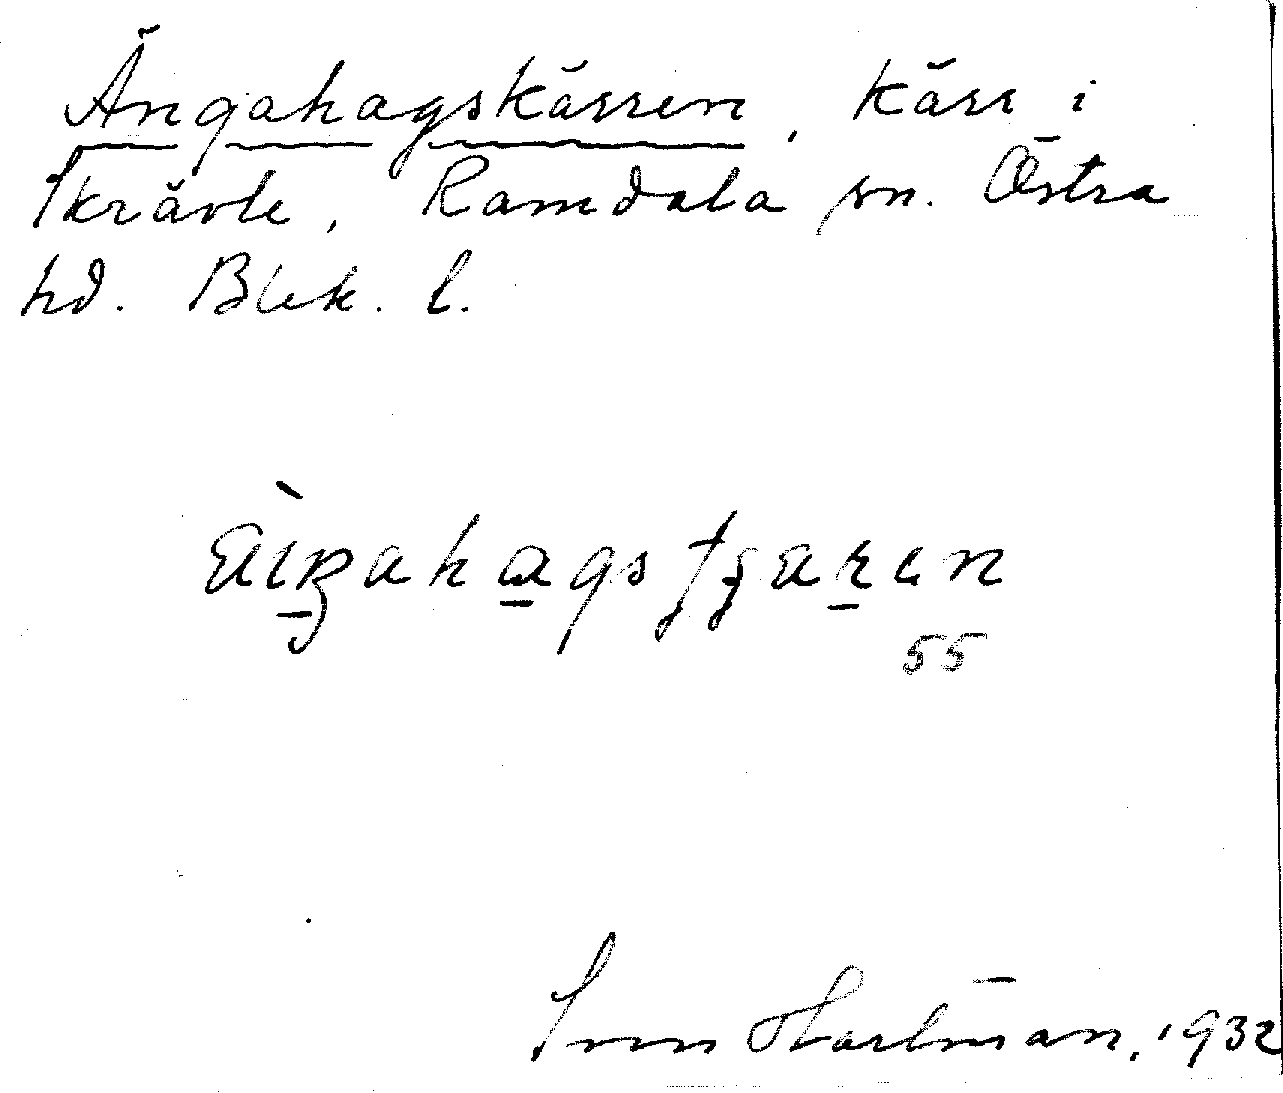 Ängahagskärren, kärr i
Skrävle, Ramdala sn. Östra
hd. Blek. l.
55
Sven Hartman, 1932